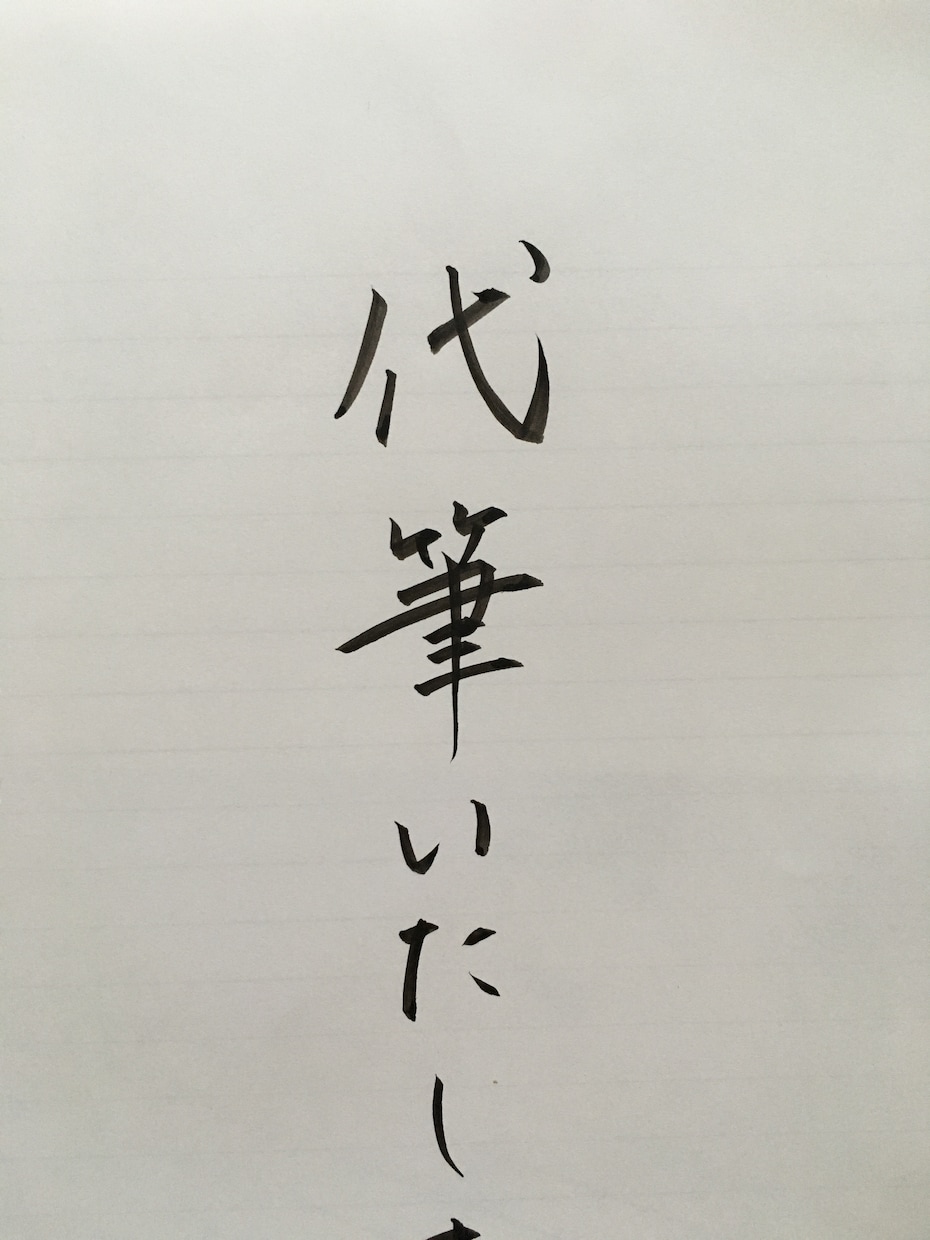 代筆いたし